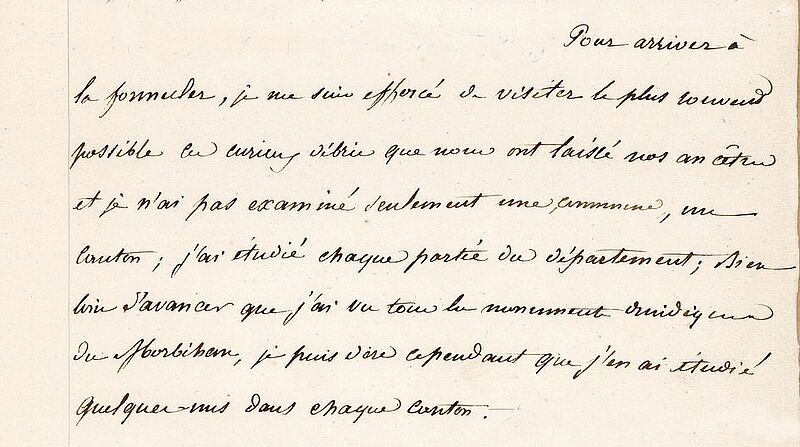 Pour arriver à
la formuler, je me suis efforcé de visiter le plus souvent
possible ces curieux débris que nous ont laissé nos ancêtres
et je n'ai pas examiné seulement une commune, un
Canton ; j'ai étudié chaque partie du département ; Bien
loin d'avancer que j'ai vu tous les monuments druidiques
du Morbihan, je puis dire cependant que j'en ai étudié
quelques-uns dans chaque canton.